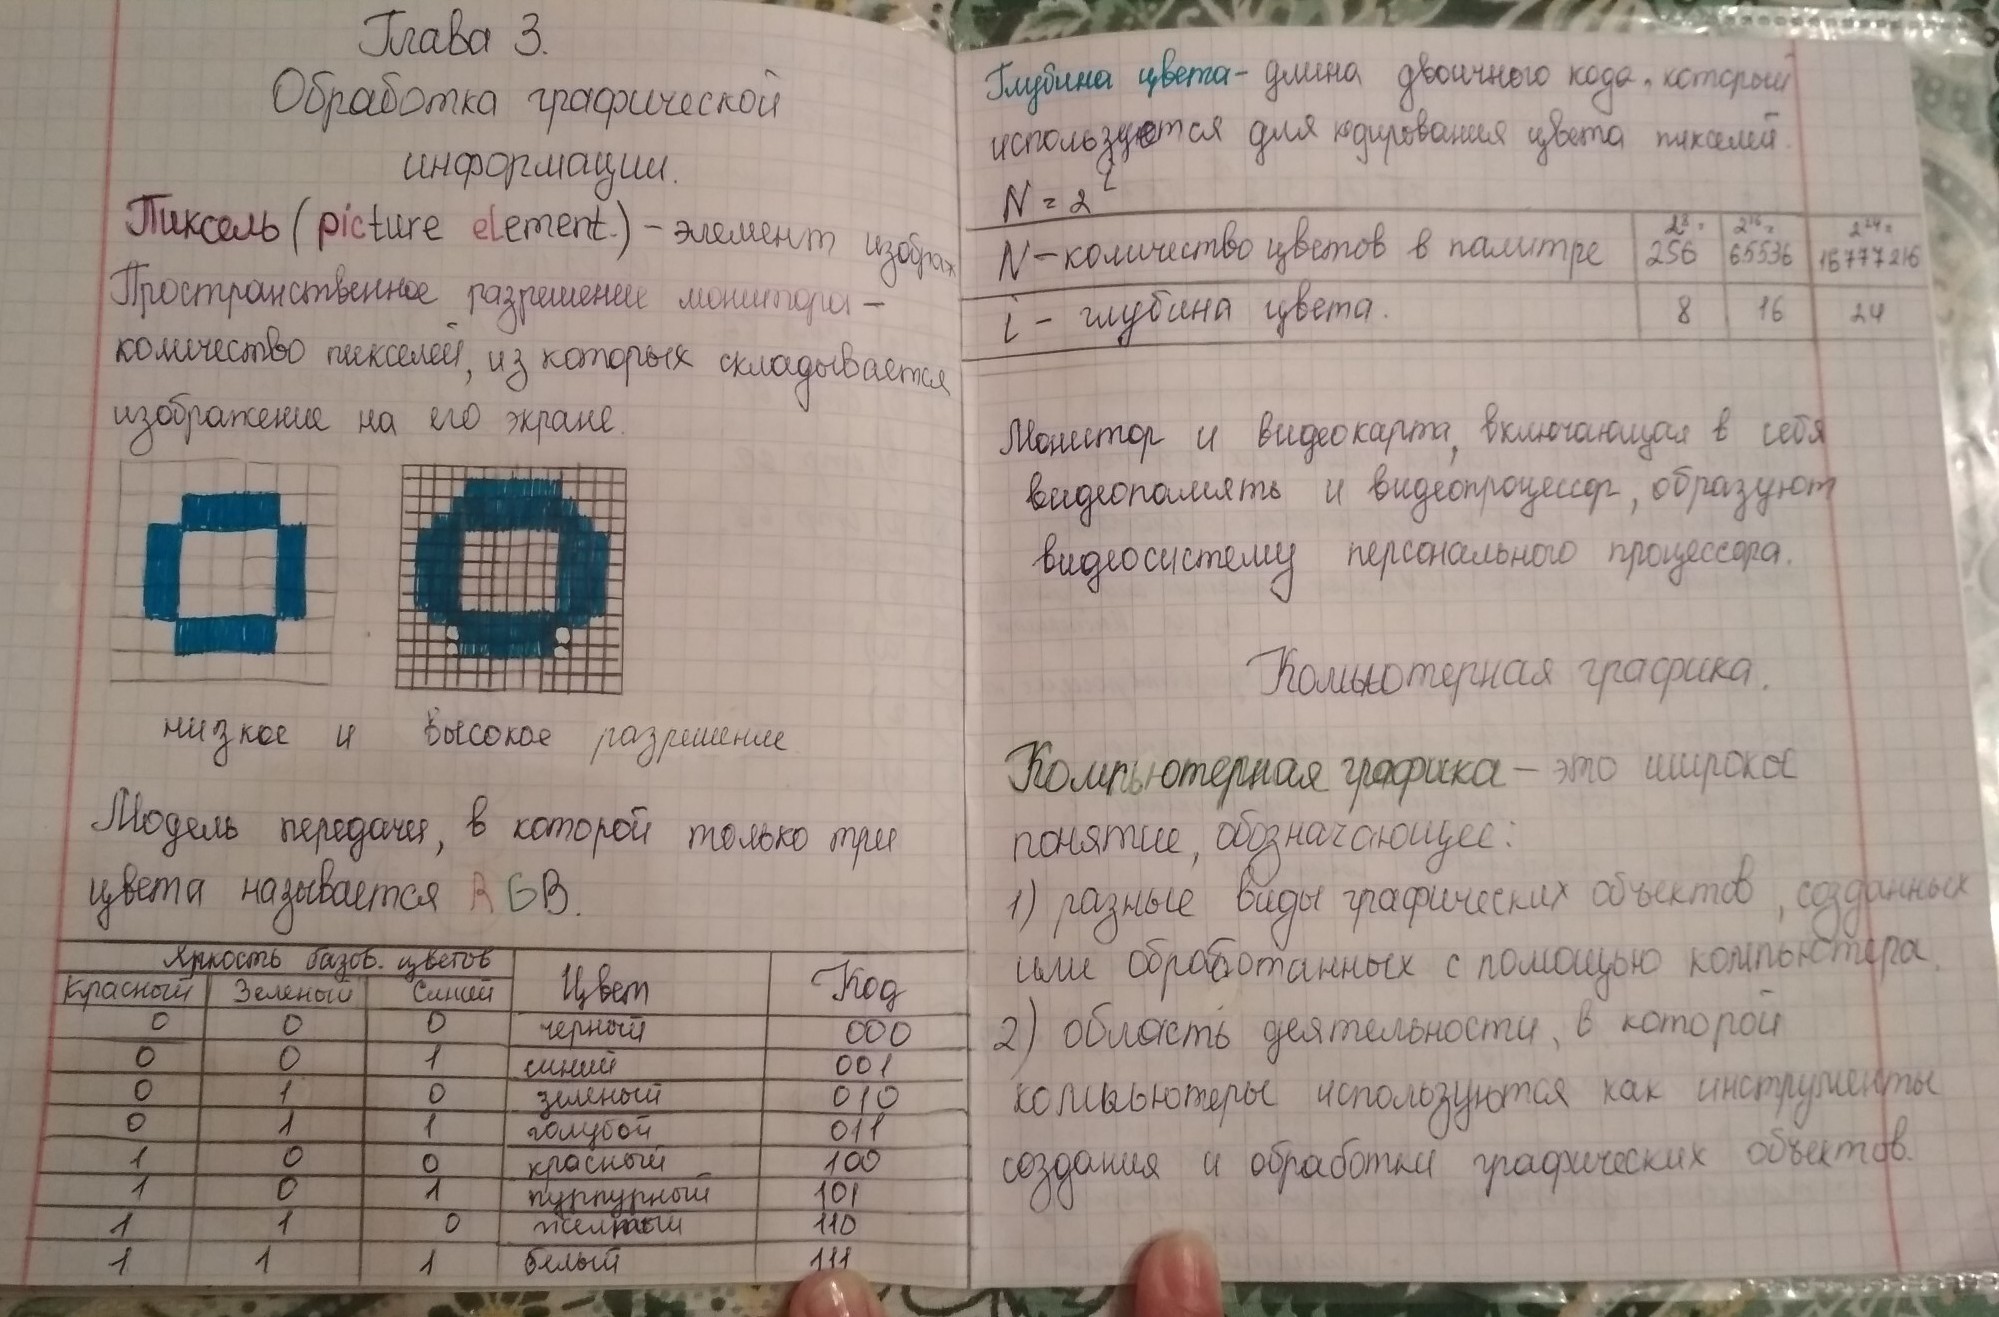 Глава 3.
Обработка графической
информации.
Пиксель (picture element.) – элемент изображ
Пространственное разрешение монитора –
количество пикселей, из которых складывается
изображение на его экране.
низкое и высокое разрешение
Модель передачи, в которой только три
цвета называется RGB.
Яркость базов. цветов Цвет Код
Красный Зеленый Синий
0 0 0 черный 000
0 0 1 синий 001
0 1 0 зеленый 010
0 1 1 голубой 011
1 0 0 красный 100
1 0 1 пурпурный 101
1 1 0 желтый 110
1 1 1 белый 111
Глубина цвета – длина двоичного кода, который
используется для кодирования цвета пикселей.
N = 2^i
N – количество цветов в палитре 2^8 = 256 2^16 = 65536 2^24 = 16777216
i – глубина цвета. 8 16 24
Монитор и видеокарта, включающая в себя
видеопамять и видеопроцессор, образуют
видеосистему персонального процессора.
Комьютерная графика.
Компьютерная графика – это широкое
понятие, обозначающее:
1) разные виды графических объектов, созданных
или обработанных с помощью компьютера.
2) область деятельности, в которой
компьютеры используются как инструменты
создания и обработки графических объектов.